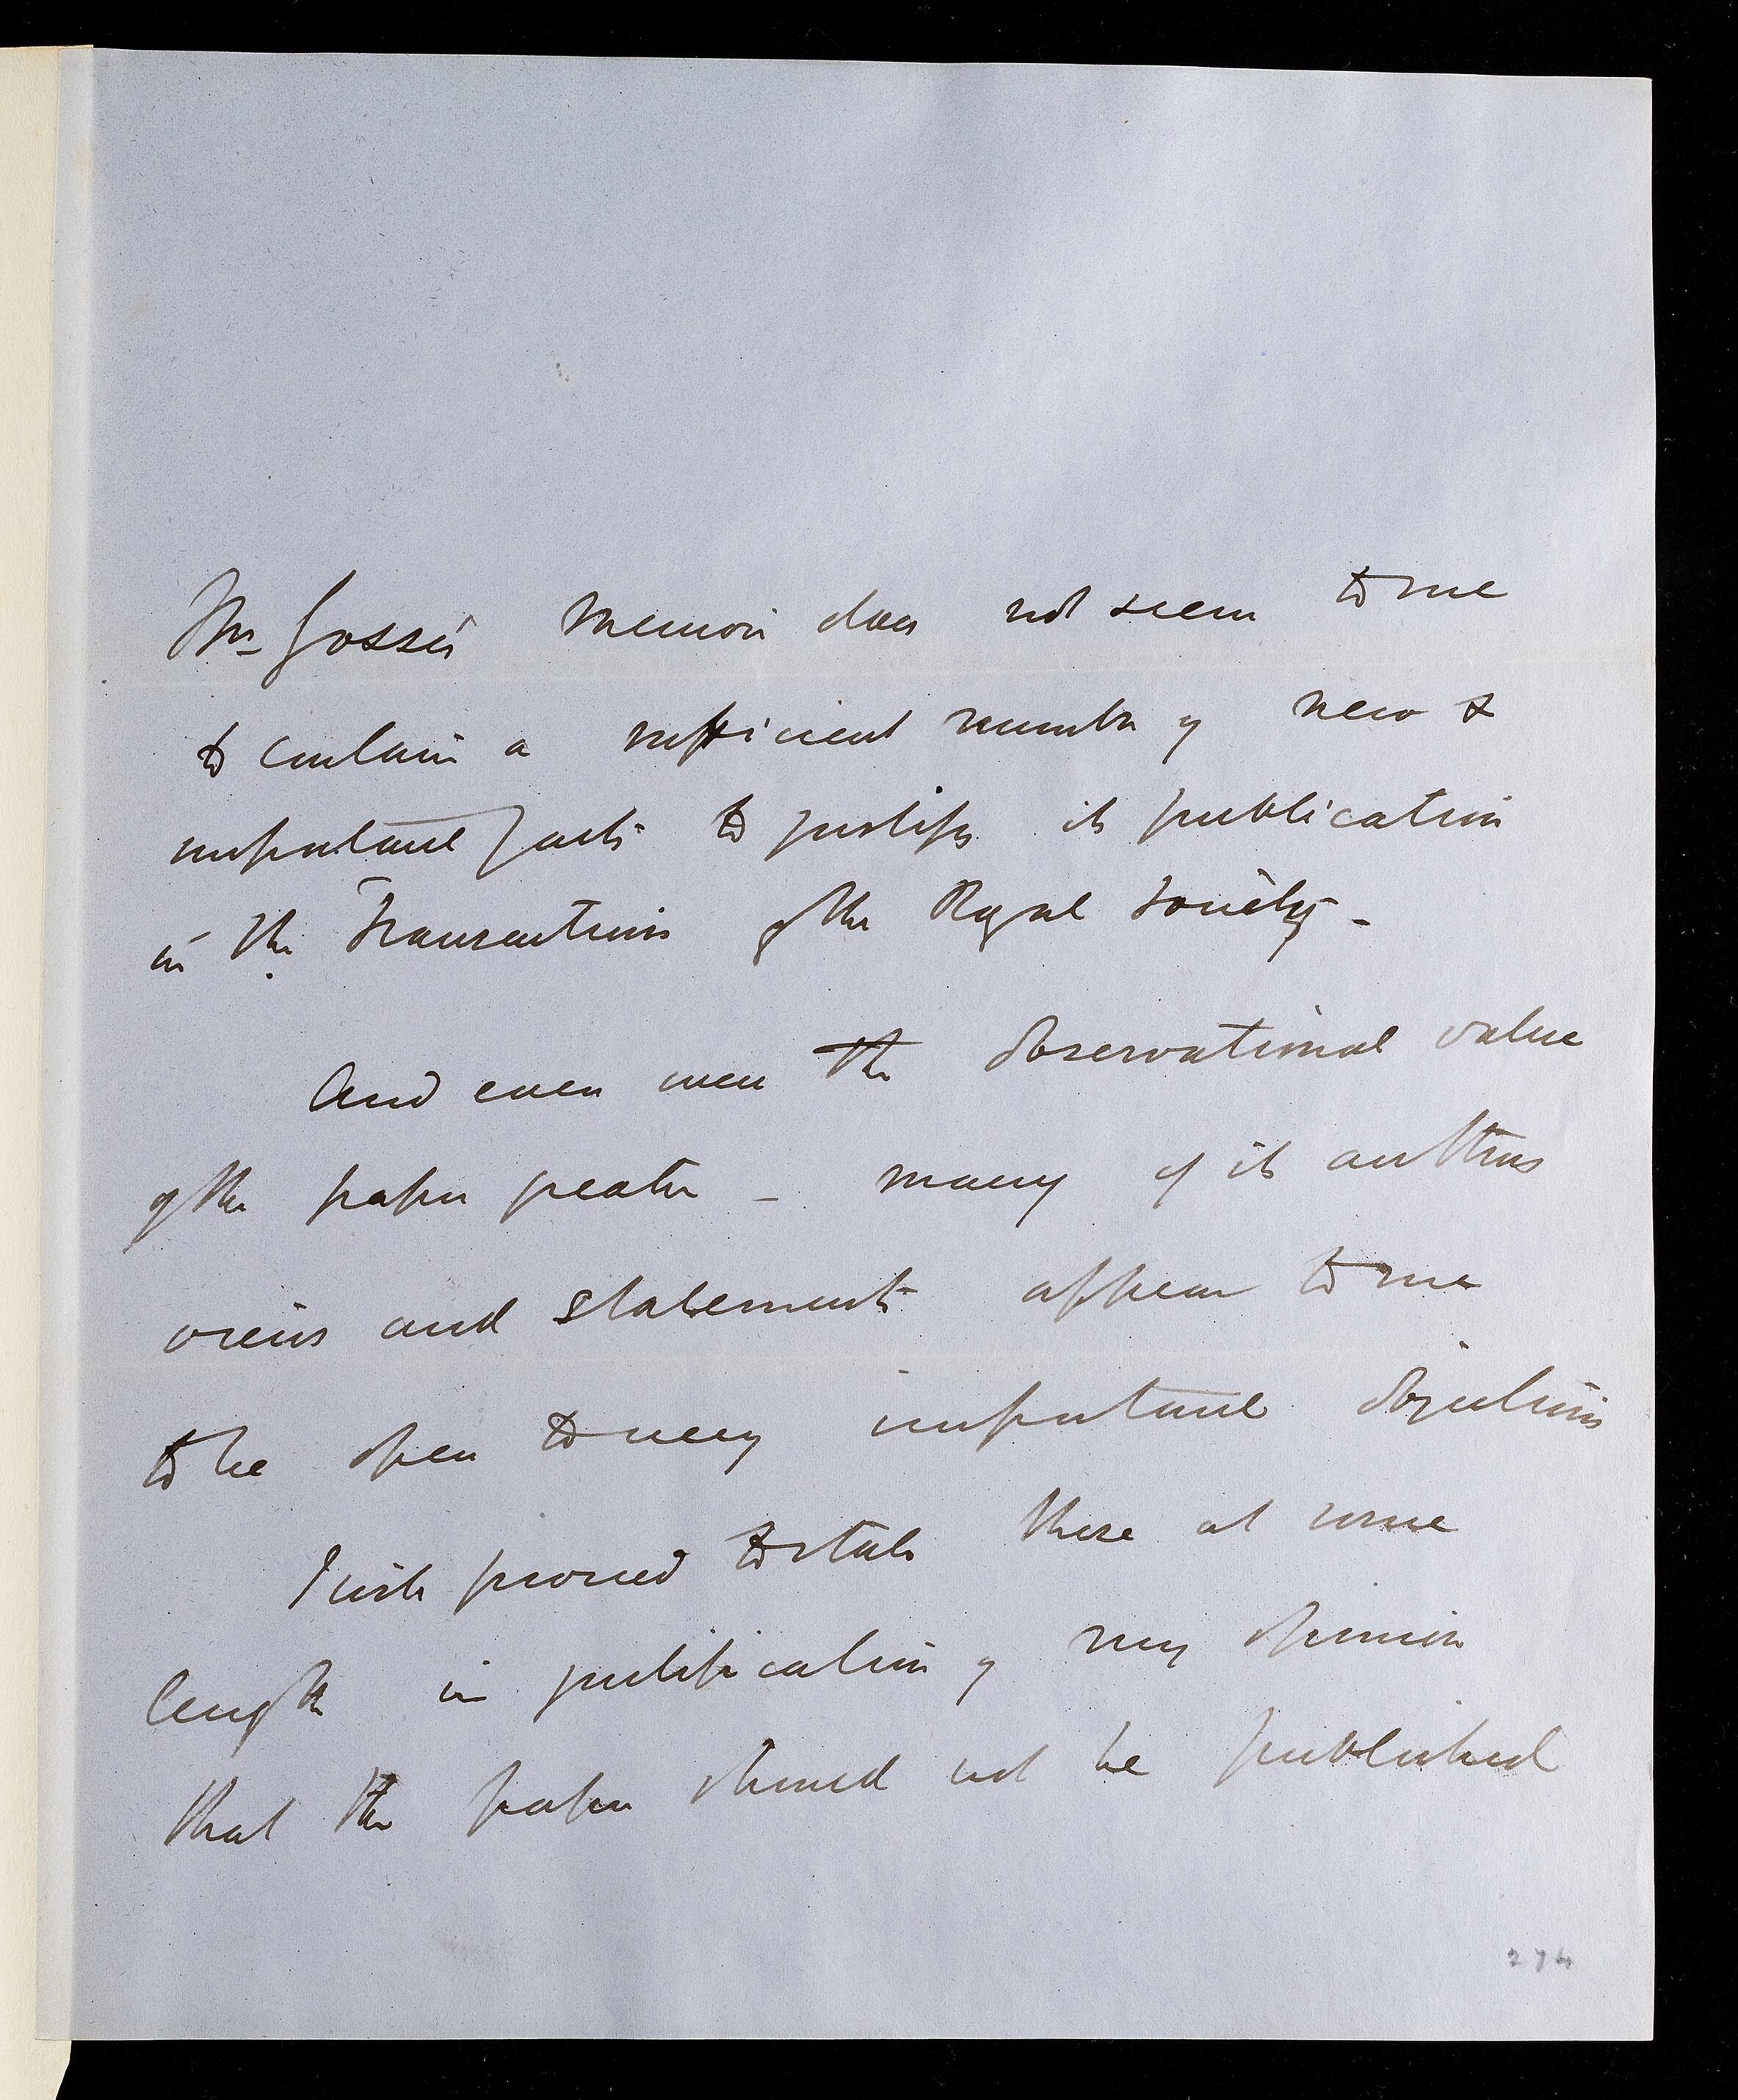 Mr Gosse's Memoir does not seem to me
to contain a sufficient number of new &
important facts to justify its publication
in the Transactions of the Royal Society –
And even were the observational value
of the paper greater – many of its authors
views and statements appear to me
to be open to very important objections
I will proceed to state these at some
length in justification of my opinion
that the paper should not be published
274